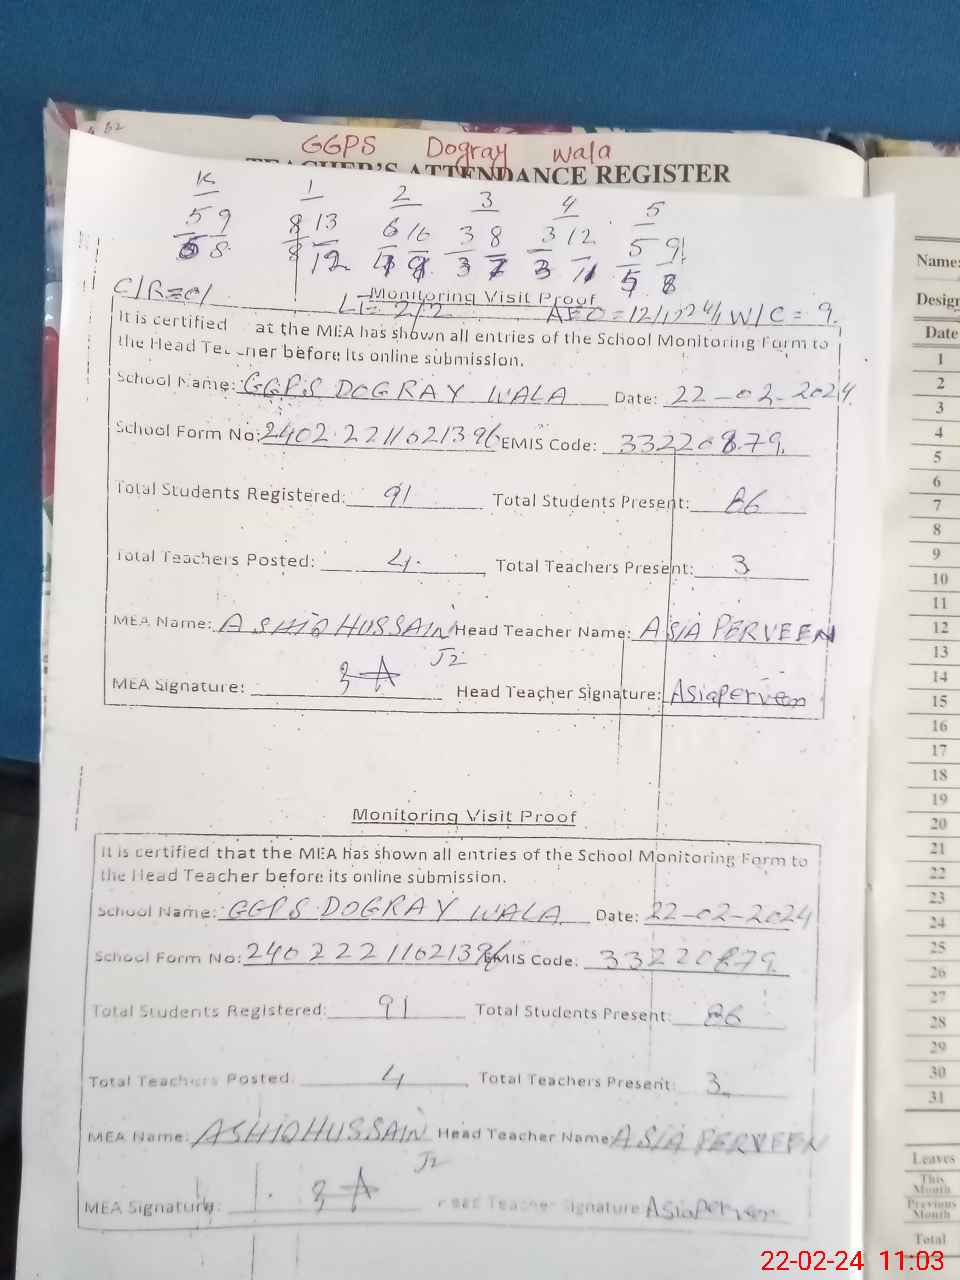 GGPS Dogray Wala
TEACHER'S ATTENDANCE REGISTER
K 1 2 3 4 5
5 9 8 13 6 16 3 8 3 12 5 9
8 8 12 3 7 3 11 5 8
Monitoring Visit Proof
C/R=01 LT= 2/2 W/C = 9.
It is certified at the MEA has shown all entries of the School Monitoring Form to
the Head Teacher before its online submission.
School Name: GGPS DOGRAY WALA Date: 22-02-2024
School Form No: 24022211021396 EMIS Code: 33220879
Total Students Registered: 91 Total Students Present: 86
Total Teachers Posted: 4. Total Teachers Present: 3
MEA Name: ASHIQ HUSSAIN Head Teacher Name: ASIA PERVEEN
J2
MEA Signature: Head Teacher Signature: Asiaperveen
Monitoring Visit Proof
It is certified that the MEA has shown all entries of the School Monitoring Form to
the Head Teacher before its online submission.
School Name: GGPS DOGRAY WALA Date: 22-02-2024
School Form No: 24022211021396 EMIS Code: 33220879
Total Students Registered: 91 Total Students Present: 86
Total Teachers Posted. 4 Total Teachers Present: 3
MEA Name: ASHIQ HUSSAIN Head Teacher Name ASIA PERVEEN
J2
MEA Signature: Head Teacher Signature Asiaperveen
Name:
Design
Date
1
2
3
4
5
6
7
8
9
10
11
12
13
14
15
16
17
18
19
20
21
22
23
24
25
26
27
28
29
30
31
Leaves
This
Month
Previous
Month
Total
22-02-24 11:03